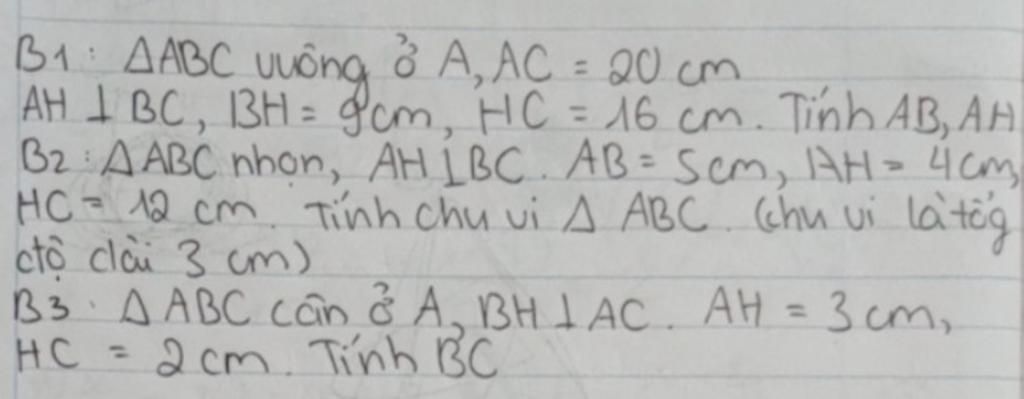 B1: ΔABC vuông ở A, AC = 20 cm
AH ⊥ BC, BH = 9cm, HC = 16 cm. Tính AB, AH
B2: ΔABC nhọn, AH ⊥ BC. AB = 5cm, AH = 4cm,
HC = 12 cm. Tính chu vi Δ ABC. (chu vi là tổg
độ dài 3 cm)
B3. Δ ABC cân ở A, BH ⊥ AC. AH = 3cm,
HC = 2cm. Tính BC